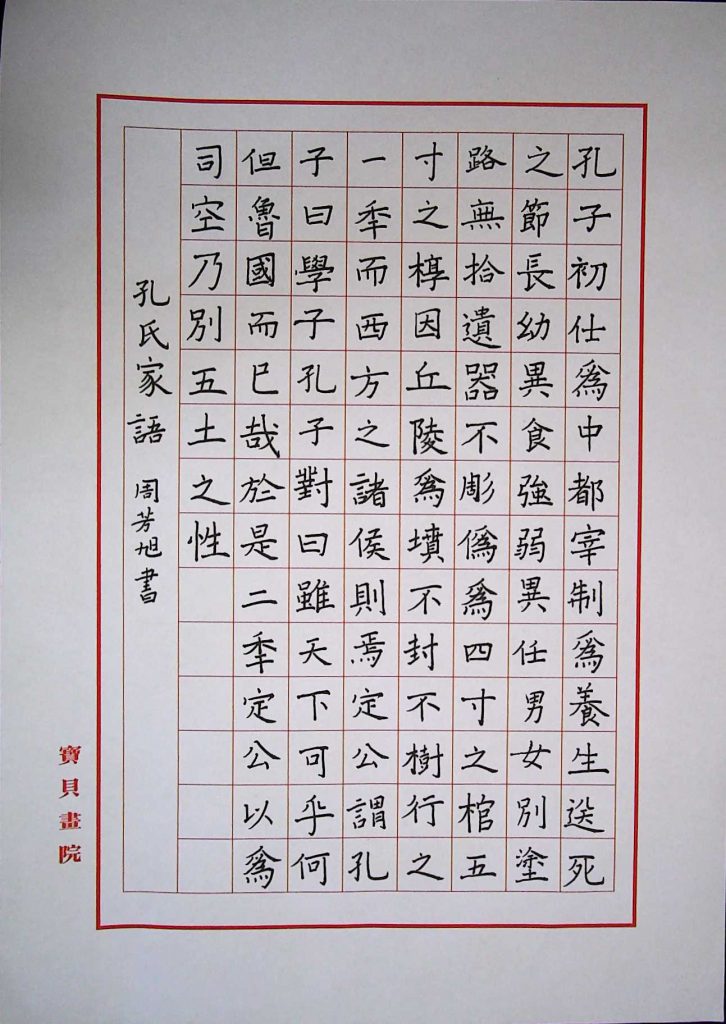 孔子初仕為中都宰制為養生送死
之節長幼異食強弱異任男女別塗
路無拾遺器不彫偽為四寸之棺五
寸之椁因丘陵為墳不封不樹行之
一秊而西方之諸侯則焉定公謂孔
子曰學子孔子對曰雖天下可乎何
但魯國而已哉於是二秊定公以為
司空乃別五土之性
孔氏家語 周芳旭書
寶貝畫院